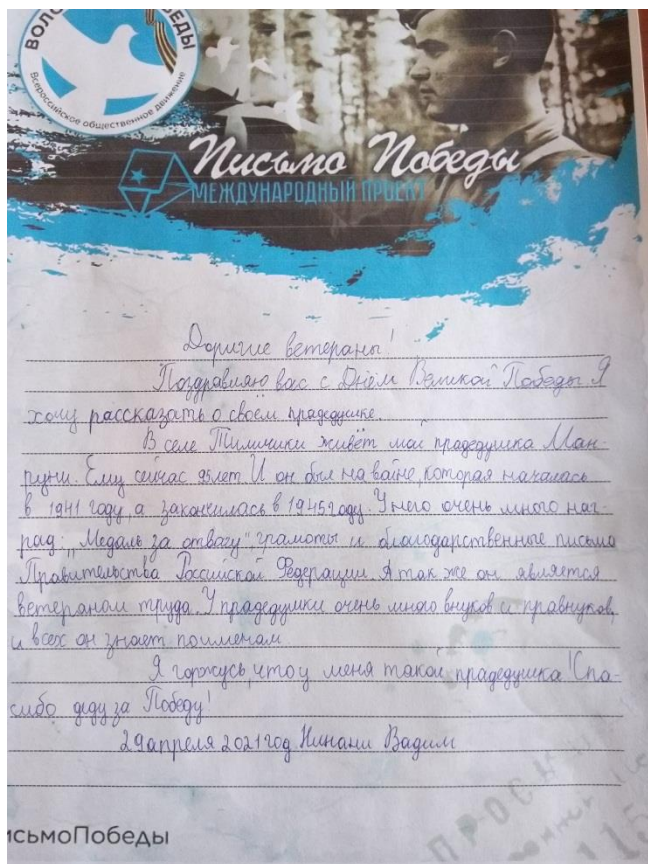 ВОЛО ПОБЕДЫ
Всероссийское общественное движение
Письмо Победы
МЕЖДУНАРОДНЫЙ ПРОЕКТ
Дорогие ветераны!
Поздравляю вас с Днём Великой Победы. Я
хочу рассказать о своём прадедушке.
В селе живёт мой прадедушка Ман-
Ему сейчас 95 лет. И он был на войне, которая началась
в 1941 году, а закончилась в 1945 году. У него очень много наг-
рад: „Медаль за отвагу", грамоты и благодарственные письма
Правительства Российской Федерации. А так же он является
ветераном труда. У прадедушки очень много внуков и правнуков,
и всех он знает поименам
Я горжусь, что у меня такой прадедушка! Спа-
сибо деду за Победу!
29 апреля 2021 год. Вадим
исьмоПобеды